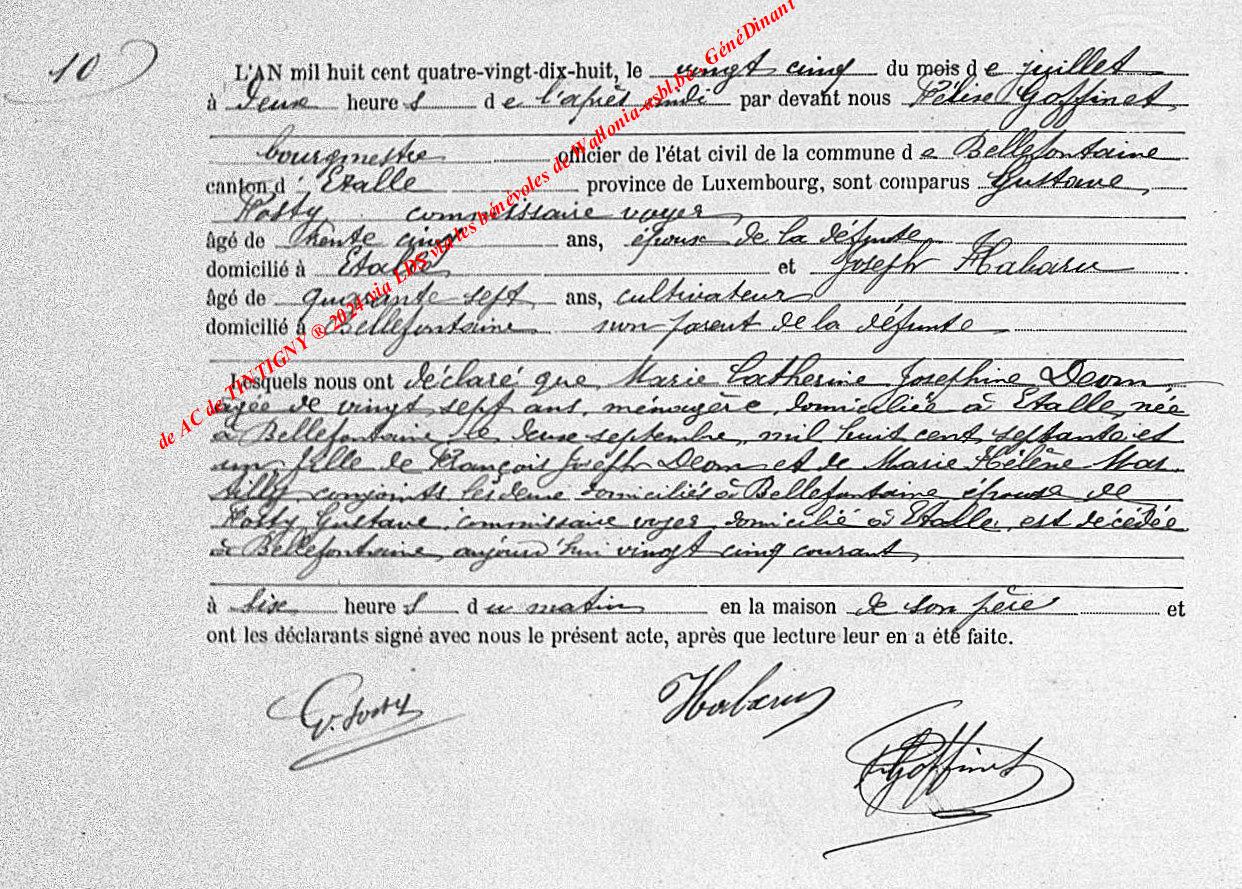 10
L'AN mil huit cent quatre-vingt-dix-huit, le vingt cinq du mois de juillet
à deux heures de l'après midi par devant nous Félix Goffinet,
bourgmestre officier de l'état civil de la commune de Bellefontaine
canton d' Etalle province de Luxembourg, sont comparus Gustave
commissaire voyer
âgé de trente cinq ans, époux de la défunte
domicilié à Etalle et Joseph Habaru
âgé de quarante sept ans, cultivateur
domicilié à Bellefontaine non parent de la défunte
Lesquels nous ont déclaré que Marie Catherine Josephine Deom
agée de vingt sept ans, ménagère, domiciliée à Etalle, née
à Bellefontaine le deux septembre mil huit cent septante et
un, fille de François Joseph Deom et de Marie Hélène
conjoints, les deux domiciliés à Bellefontaine épouse de
Gustave, commissaire voyer domicilié à Etalle, est décédée
à Bellefontaine aujourd'hui vingt cinq courant
à six heures du matin en la maison de son père et
ont les déclarants signé avec nous le présent acte, après que lecture leur en a été faite.
Habaru
Goffinet
de AC de TINTIGNY ® 2024 via LDS via les bénévoles de Wallonia-asbl.be - GénéDinant